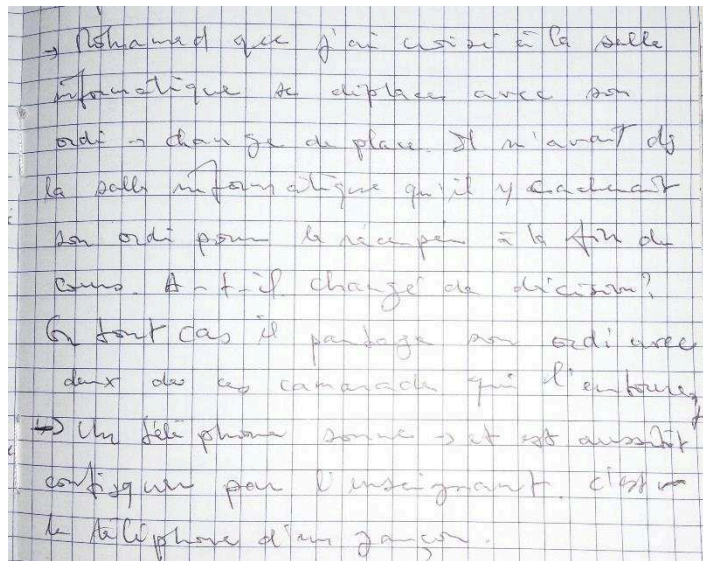 → Mohamed que j'ai croisé à la salle
informatique se déplace avec son
ordi → change de place. Il m'avait dit
la salle informatique qu'il y cacherait
son ordi pour le récupérer à la fin du
cours. A-t-il changé de décision?
En tout cas il partage son ordi avec
deux de ces camarade qui l'entoure,
→ Un téléphone sonne → et est aussitôt
confisquer par l'enseignant. c'est
le téléphone d'un garçon.